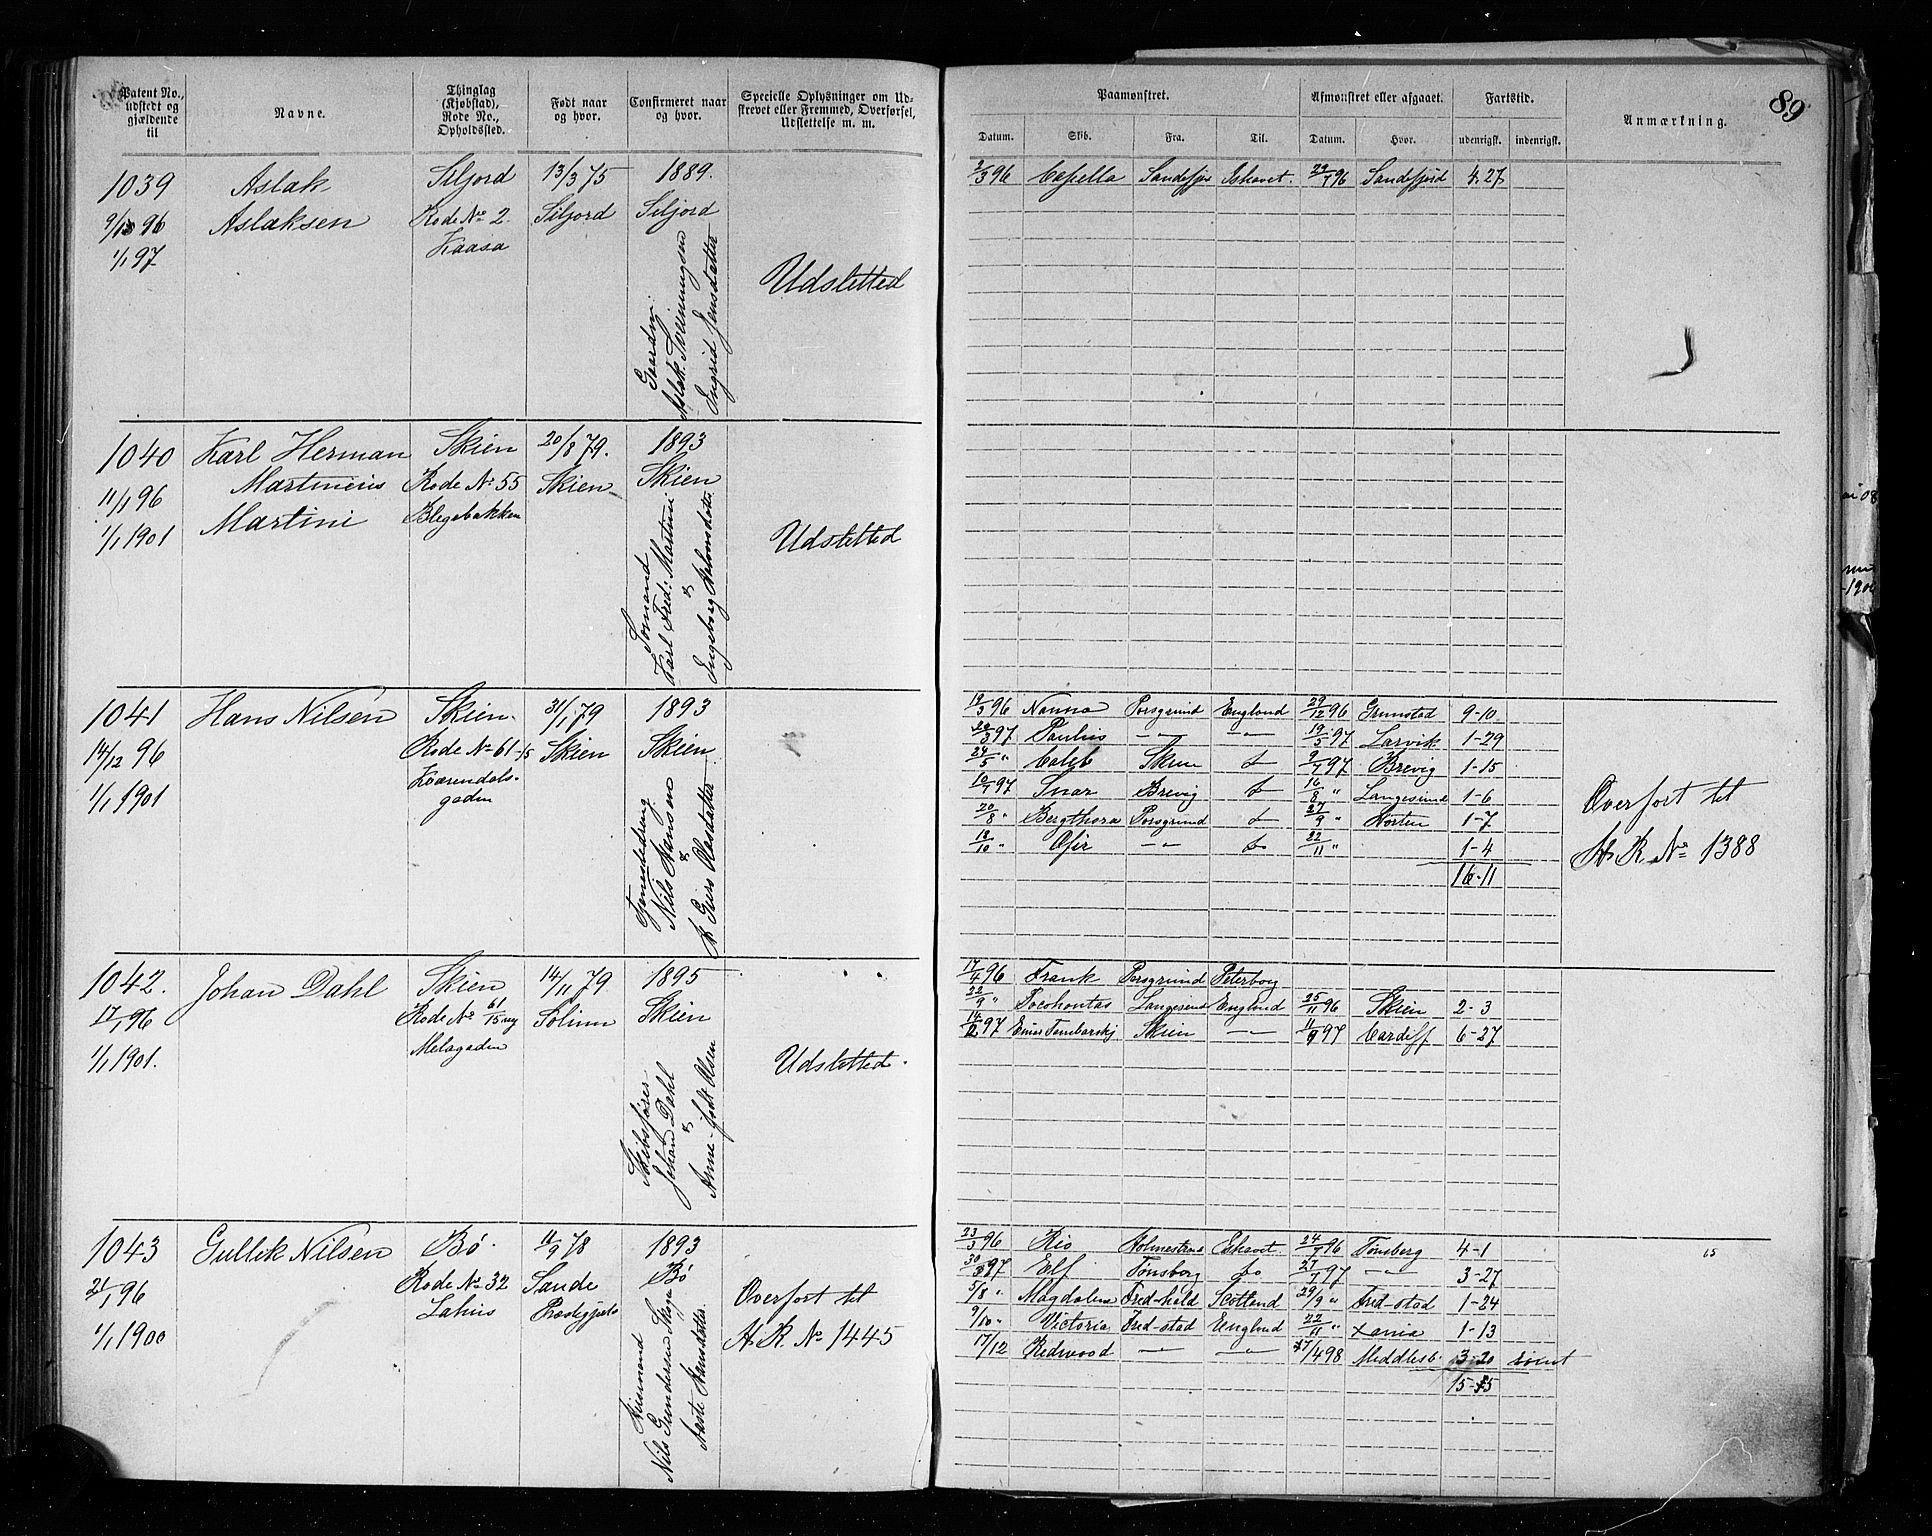 89
Patent No., udstedt og gjældende til
Navne.
Thinglag (Kjøbstad), Rode No., Opholdssted.
Født naar og hvor.
Confirmeret naar og hvor.
Specielle Oplysninger om Udskrevet eller Fremmed, Overførsel, Udslettelse m. m.
Paamønstret.
Afmønstret eller afgaaet.
Fartstid.
Anmærkning.
Datum. Skib. Fra. Til. Datum. Hvor. udenrigsk. indenrigsk.
1039 Aslak Siljord 13/3 75 1889.
96 Aslaksen Rode No 2. Siljord Siljord
1/1 97 Kaasa
Gaardm.
Aslak Sveinungsen
Ingrid Jensdatter
Udsletted
2/3 96 Capella Sandefj. Ishavet. 96 Sandefjord 4.27
1040 Karl Herman Skien 20/8 79. 1893
11/1 96 Martinius Rode No 55 Skien Skien
1/1 1901 Martini Blegebakken
Sømand
Karl Fred: Martini
&
Ingeborg Halvorsdatter
Udsletted
1041 Hans Nilsen Skien. 31/1 79 1893
14/12 96 Rode No 61-15 Skien Skien
1/1 1901 Kværndals-
gaden
Tjenestedreng
Nils Hansen
&
Olesdatter
12/3 96 Nanna Porsgrund England 22/12 96 Grimstad 9-10
22/3 97 Paulus -„- -„- 19/5 97 Larvik 1-29
24/5 " Caleb Skien do 9/7 97 Brevig 1-15
10/7 97 Snar Brevig do 16/8 " Langesund 1-6
20/8 " Bergthora Porsgrund do 27/9 " Horten 1-7
18/10 " Ofir -„- do 22/11 " 1-4
16-11
Overført til
H. R. No 1388
1042. Johan Dahl Skien 14/11 79. 1895
17/1 96 Rode No 61/15 ny Solum Skien
1/1 1901. Melagaden
Skibsfører
Johan Dahl
&
Anne født Olsen
Udslettet.
17/4 96 Frank Porsgrund Peterborg
22/9 " Pocohontas Langesund England 25/11 96 Skien 2-3
14/12 97 Skien -„- 11/9 97 Cardiff 6-27
1043 Gullik Nilsen Bø. 11/9 78 1893
21/1 96 Rode No 32 Sande Bø
1/1 1900
Husmand
Nils Gundersen
Aaste Hansdatter
Overført til
H. R. No 1445
23/3 96 Rio Holmestrand Ishavet. 24/7 96 Tønsberg 4-1
30/3 97 Elf Tønsberg do 27/7 97 -„- 3-27
5/8 " Magdalene Fred-hald Scotland 29/9 " Fred-stad 1-24
9/10 " Victoria Fred-stad England 22/11 " Xania 1-13
17/12 Redwood -„- -„- 4 98 Middlesb. 3-20 rømt
15